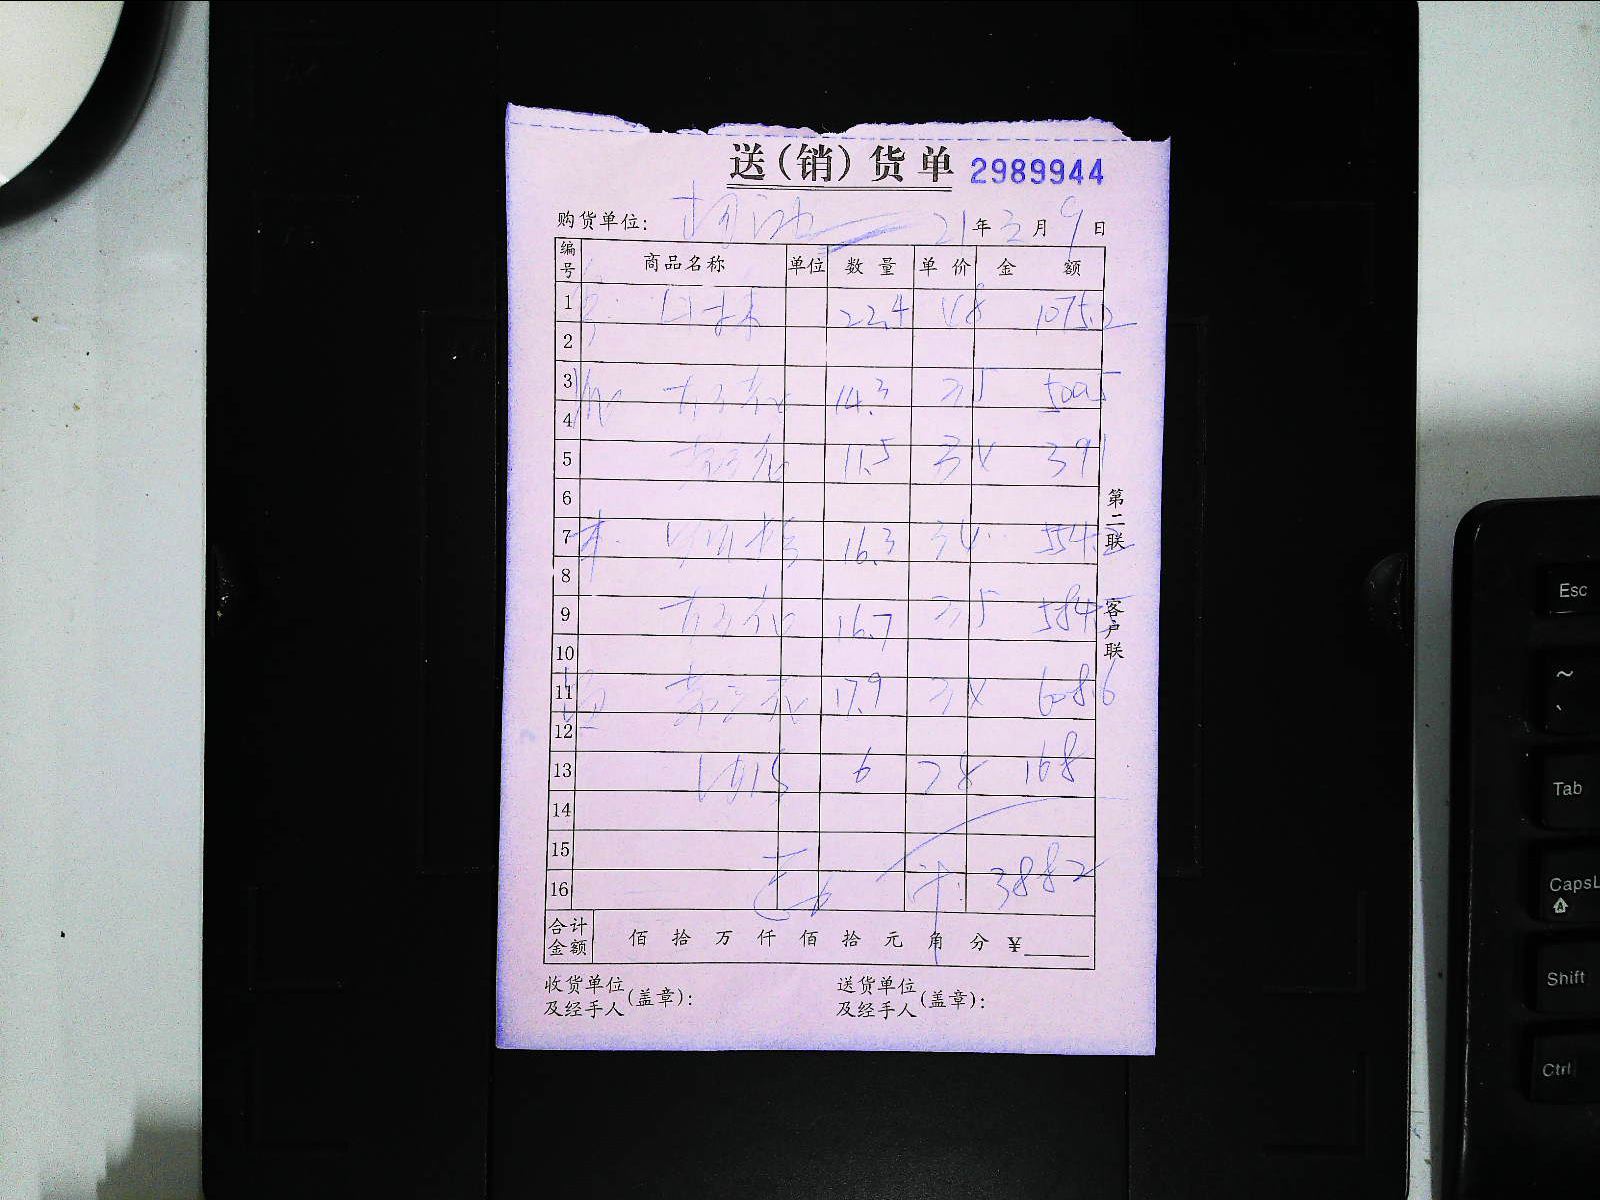 送(销)货单 2989944
购货单位: 21年3月9日
编号 商品名称 单位 数量 单价 金额
1 22.4 48 1075.2
2
3 14.3 35 500.5
4
5 11.5 34 391
6
7 16.3 34 554.2
8
9 16.7 35 584.5
10
11 17.9 34 608.6
12
13 6 28 168
14
15
16 计: 3882
合计金额 佰拾万仟佰拾元角分¥
收货单位及经手人(盖章):
送货单位及经手人(盖章):
第二联 客户联
Esc
~
`
Tab
CapsL
Shift
Ctrl